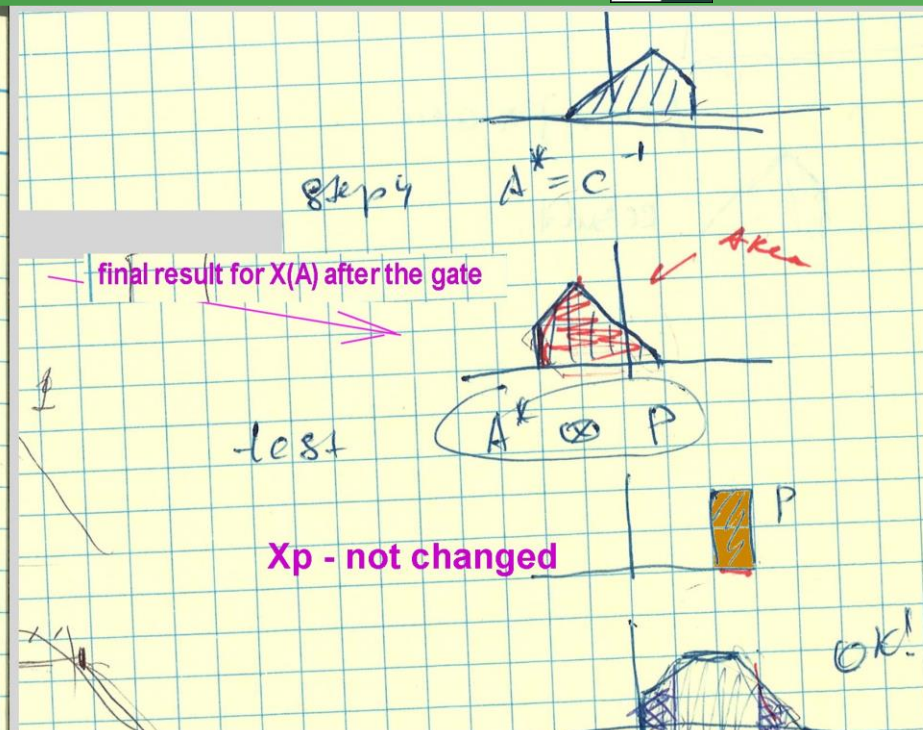 step 4 A* = C⁻¹
Area
final result for X(A) after the gate
1
test A* ⊗ P
P
Xp - not changed
OK!